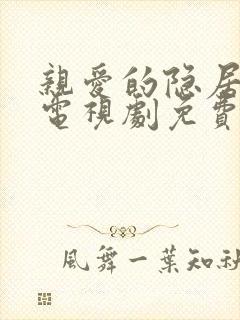 親愛的隐居
電視劇免費
風舞一葉知秋